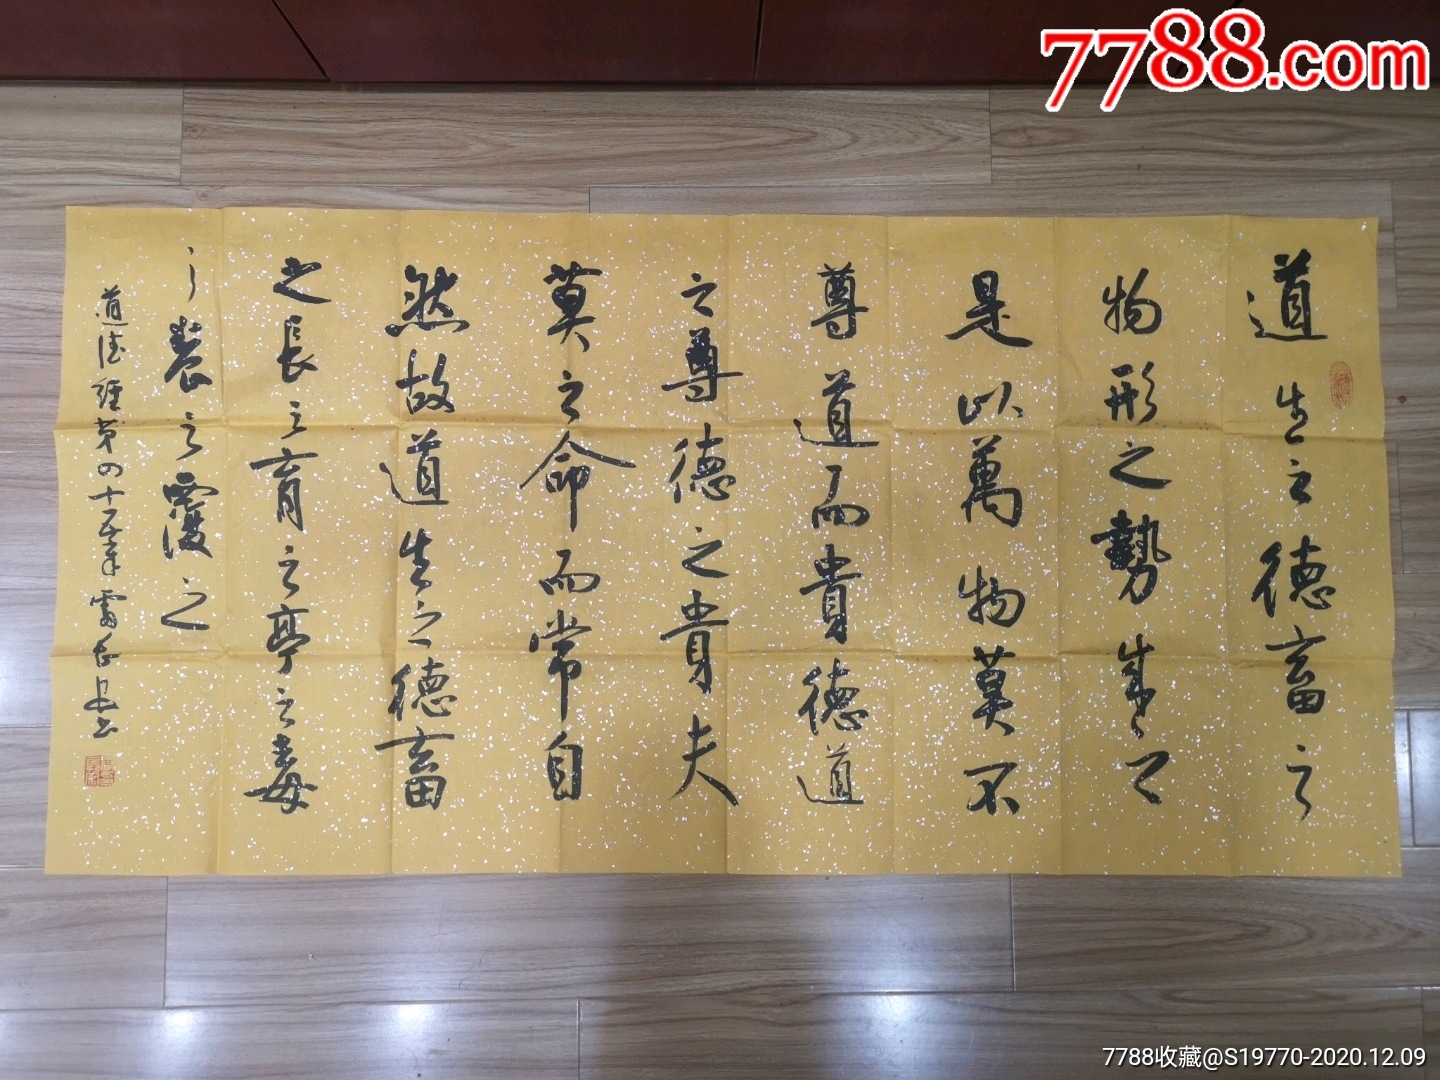 7788.com
道生之德畜之
物形之勢成之
是以萬物莫不
尊道而貴德道
之尊德之貴夫
莫之命而常自
然故道生之德畜
之長之育之亭之毒
之養之覆之
道德經第四十五章 雷 書
7788收藏@S19770-2020.12.09